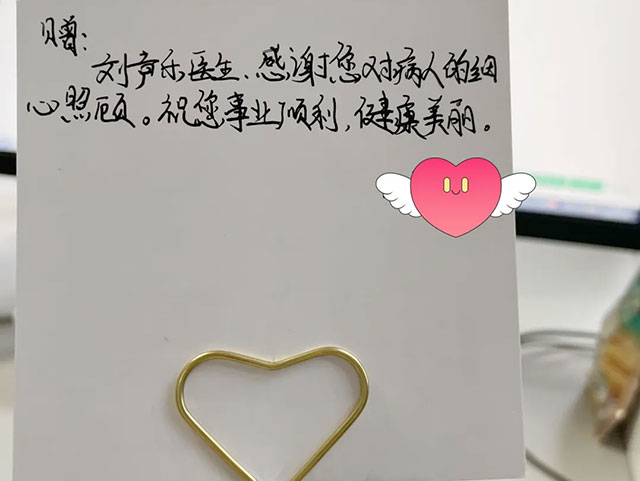 赠：
刘音乐医生，感谢您对病人的细
心照顾。祝您事业顺利，健康美丽。